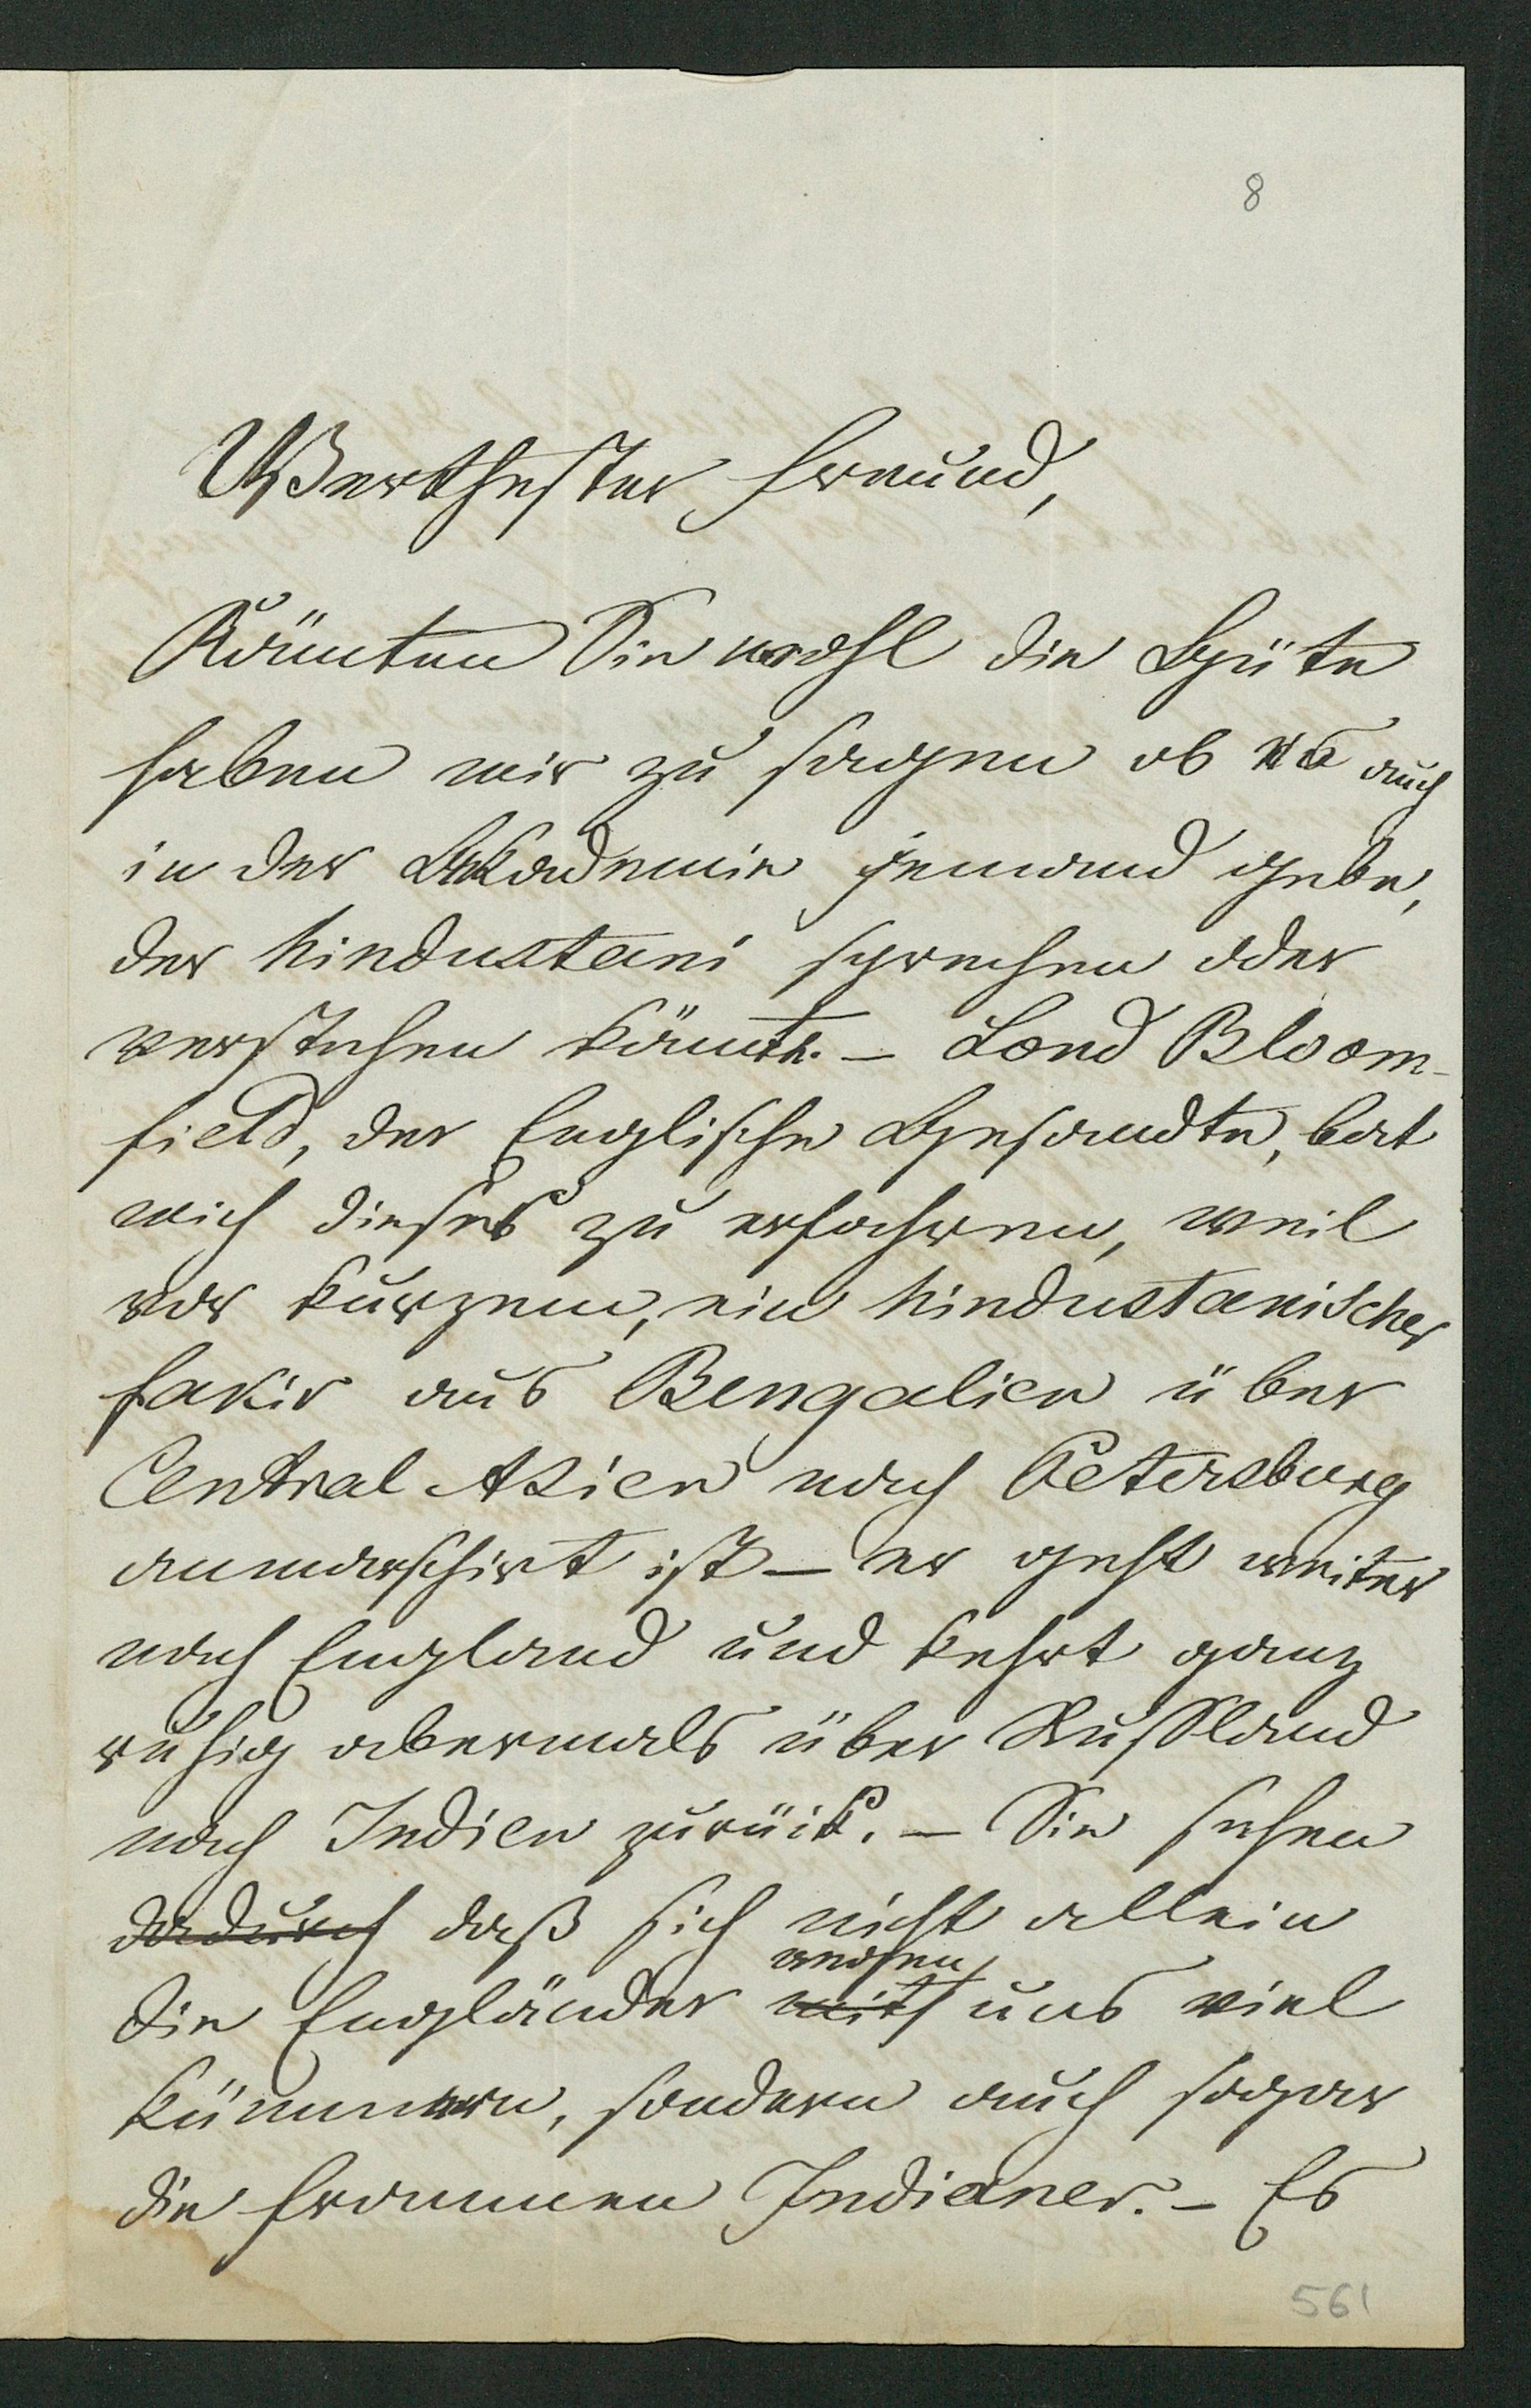 8
Werthester Freund,
Könnten Sie wohl die Güte
haben mir zu sagen ob es auch
in der Akademie jemand gebe,
der hindustani sprechen oder
verstehen könnte. – Lord Bloom-
field, der Englische Gesandte, bat
mich dieses zu erfahren, weil
vor kurzem, ein hindustanischer
Fakir aus Bengalien über
Central Asien nach Petersburg
anmarschirt ist – er geht weiter
nach England und kehrt ganz
ruhig abermals über Russland
nach Indien zurück. – Sie sehen
dadurch daß sich nicht allein
wegen
die Engländer mit uns viel
kümmern, sondern auch sogar
die frommen Indianer. – Es
561